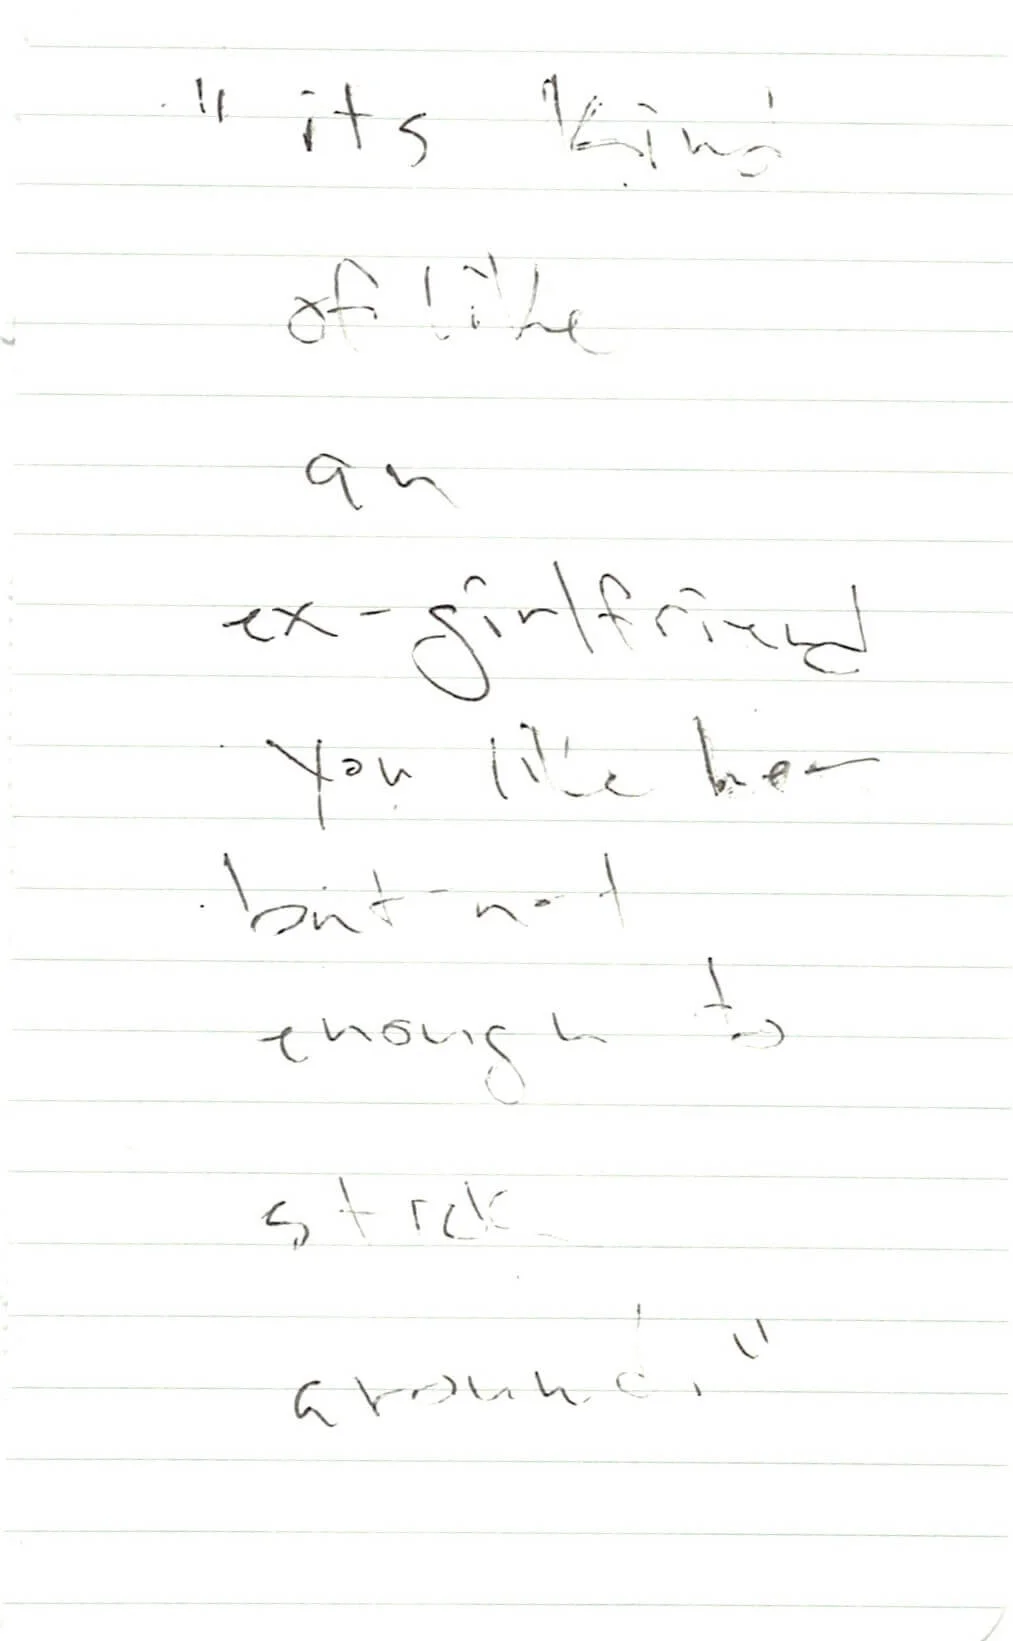 "its Kind
of like
an
ex-girlfriend
you like her
but not
enough to
stick
around."